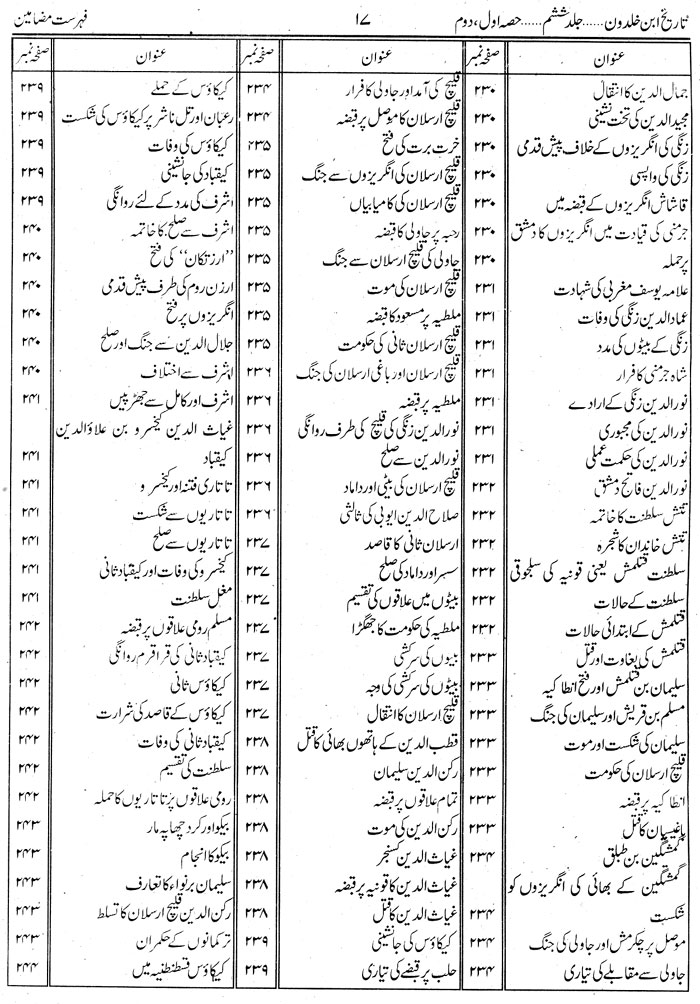 تاریخ ابن خلدون ...... جلد ششم ...... حصہ اول، دوم
۱۷
فہرست مضامین
عنوان صفحہ نمبر
جمال الدین کا انتقال ۲۳۰
مجید الدین کی تخت نشینی ۲۳۰
زنگی کی انگریزوں کے خلاف پیش قدمی ۲۳۰
زنگی کی واپسی ۲۳۰
قاشاش انگریزوں کے قبضہ میں ۲۳۰
جرمنی کی قیادت میں انگریزوں کا دمشق
پر حملہ ۲۳۰
علامہ یوسف مغربی کی شہادت ۲۳۱
عماد الدین زنگی کی وفات ۲۳۱
زنگی کے بیٹوں کی مدد ۲۳۱
شاہ جرمنی کا فرار ۲۳۱
نور الدین زنگی کے ارادے ۲۳۱
نور الدین کی مجبوری ۲۳۱
نور الدین کی حکمت عملی ۲۳۱
نور الدین فاتح دمشق ۲۳۲
تتش سلطنت کا خاتمہ ۲۳۲
تتش خاندان کا شجرہ ۲۳۲
سلطنت قتلمش یعنی قونیہ کی سلجوقی ۲۳۲
سلطنت کے حالات ۲۳۲
قتلمش کے ابتدائی حالات ۲۳۲
قتلمش کی بغاوت اور قتل ۲۳۳
سلیمان بن قتلمش اور فتح انطاکیہ ۲۳۳
مسلم بن قریش اور سلیمان کی جنگ ۲۳۳
سلیمان کی شکست اور موت ۲۳۳
قلیچ ارسلان کی حکومت ۲۳۳
انطاکیہ پر قبضہ ۲۳۳
باغیسیان کا قتل ۲۳۳
گمشتگین بن طبلق ۲۳۴
گمشتگین کے بھائی کی انگریزوں کو
شکست ۲۳۴
موصل پر چکرمش اور جاولی کی جنگ ۲۳۴
جاولی سے مقابلے کی تیاری ۲۳۴
عنوان صفحہ نمبر
قلیچ کی آمد اور جاولی کا فرار ۲۳۴
قلیچ ارسلان کا موصل پر قبضہ ۲۳۴
خرت برت کی فتح ۲۳۵
قلیچ ارسلان کی انگریزوں سے جنگ ۲۳۵
قلیچ ارسلان کی کامیابیاں ۲۳۵
رحبہ پر جاولی کا قبضہ ۲۳۵
جاولی کی قلیچ ارسلان سے جنگ ۲۳۵
قلیچ ارسلان کی موت ۲۳۵
ملطیہ پر مسعود کا قبضہ ۲۳۵
قلیچ ارسلان ثانی کی حکومت ۲۳۵
قلیچ ارسلان اور باغی ارسلان کی جنگ ۲۳۶
ملطیہ پر قبضہ ۲۳۶
نور الدین زنگی کی قلیچ کی طرف روانگی ۲۳۶
نور الدین سے صلح ۲۳۶
قلیچ ارسلان کی بیٹی اور داماد ۲۳۶
صلاح الدین ایوبی کی ثالثی ۲۳۶
ارسلان ثانی کا قاصد ۲۳۷
سسر اور داماد کی صلح ۲۳۷
بیٹوں میں علاقوں کی تقسیم ۲۳۷
ملطیہ کی حکومت کا جھگڑا ۲۳۷
بیوں کی سرکشی ۲۳۷
بیٹوں کی سرکشی کی وجہ ۲۳۷
قلیچ ارسلان کا انتقال ۲۳۷
قطب الدین کے ہاتھوں بھائی کا قتل ۲۳۸
رکن الدین سلیمان ۲۳۸
تمام علاقوں پر قبضہ ۲۳۸
رکن الدین کی موت ۲۳۸
غیاث الدین کسنجر ۲۳۸
غیاث الدین کا قونیہ پر قبضہ
غیاث الدین کا قتل ۲۳۸
کیکاؤس کی جانشینی ۲۳۹
حلب پر قبضے کی تیاری ۲۳۹
عنوان صفحہ نمبر
کیکاؤس کے حملے ۲۳۹
رعبان اور تل ناشر پر کیکاؤس کی شکست ۲۳۹
کیکاؤس کی وفات ۲۳۹
کیقباد کی جانشینی ۲۳۹
اشرف کی مدد کے لئے روانگی ۲۳۹
اشرف سے صلح کا خاتمہ ۲۴۰
"ارزنکان" کی فتح ۲۴۰
ارزن روم کی طرف پیش قدمی ۲۴۰
انگریزوں پر فتح ۲۴۰
جلال الدین سے جنگ اور صلح ۲۴۰
اشرف سے اختلاف ۲۴۰
اشرف اور کامل سے جھڑپیں ۲۴۱
غیاث الدین کیخسرو بن علاؤ الدین
کیقباد ۲۴۱
تاتاری فتنہ اور کیخسرو ۲۴۱
تاتاریوں سے شکست ۲۴۱
تاتاریوں سے صلح ۲۴۱
کیخسرو کی وفات اور کیقباد ثانی ۲۴۱
مغل سلطنت ۲۴۱
مسلم رومی علاقوں پر قبضہ ۲۴۲
کیقباد ثانی کی قراقرم روانگی ۲۴۲
کیکاؤس ثانی ۲۴۲
کیکاؤس کے قاصد کی شرارت ۲۴۲
کیقباد ثانی کی وفات ۲۴۲
سلطنت کی تقسیم ۲۴۲
رومی علاقوں پر تاتاریوں کا حملہ ۲۴۲
بیکو اور کرد چھاپہ مار ۲۴۳
بیکو کا انجام ۲۴۳
سلیمان برنواء کا تعارف ۲۴۳
رکن الدین قلیچ ارسلان کا تسلط ۲۴۳
ترکمانوں کے حکمران ۲۴۳
کیکاؤس قسطنطنیہ میں ۲۴۴